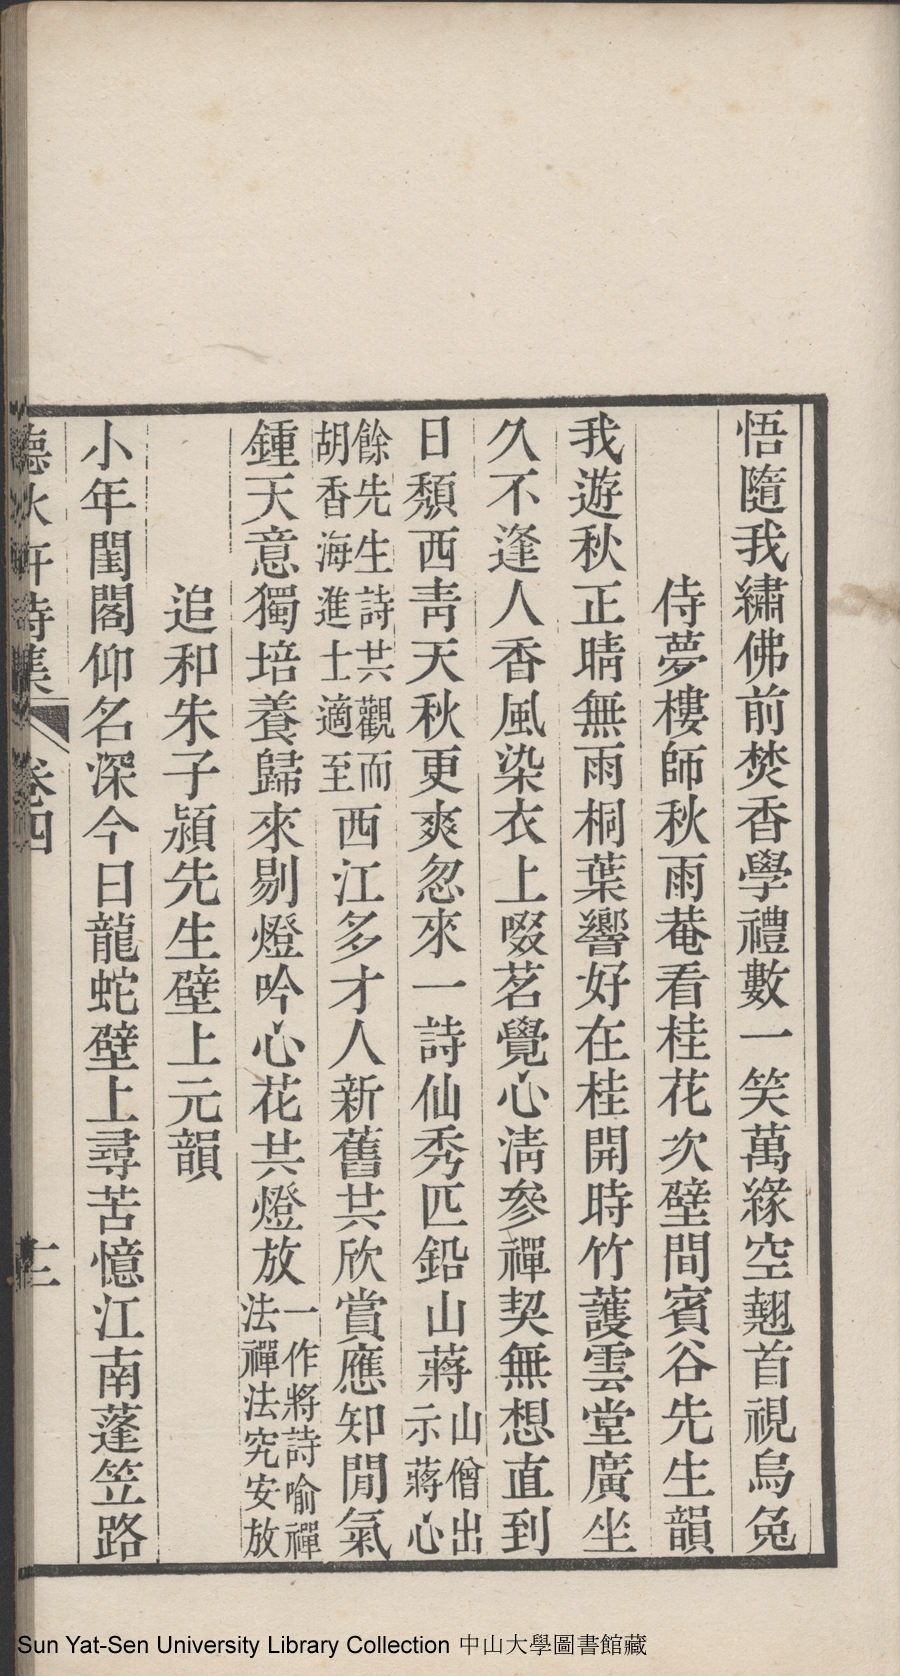 悟隨我繡佛前焚香學禮數一笑萬緣空翹首視烏兔
侍夢樓師秋雨菴看桂花次壁間賓谷先生韻
我遊秋正晴無雨桐葉響好在桂開時竹護雲堂廣坐
久不逢人香風染衣上啜茗覺心淸參禪契無想直到
日頽西靑天秋更爽忽來一詩仙秀匹鉛山蔣山僧出示蔣心
餘先生詩共觀而胡香海進士適至西江多才人新舊共欣賞應知閒氣
鍾天意獨培養歸來剔燈吟心花共燈放一作將詩喻禪法禪法究安放
追和朱子潁先生壁上元韻
小年閨閣仰名深今日龍蛇壁上尋苦憶江南蓬笠路
聽秋軒詩集 卷四 十二
Sun Yat-Sen University Library Collection 中山大學圖書館藏